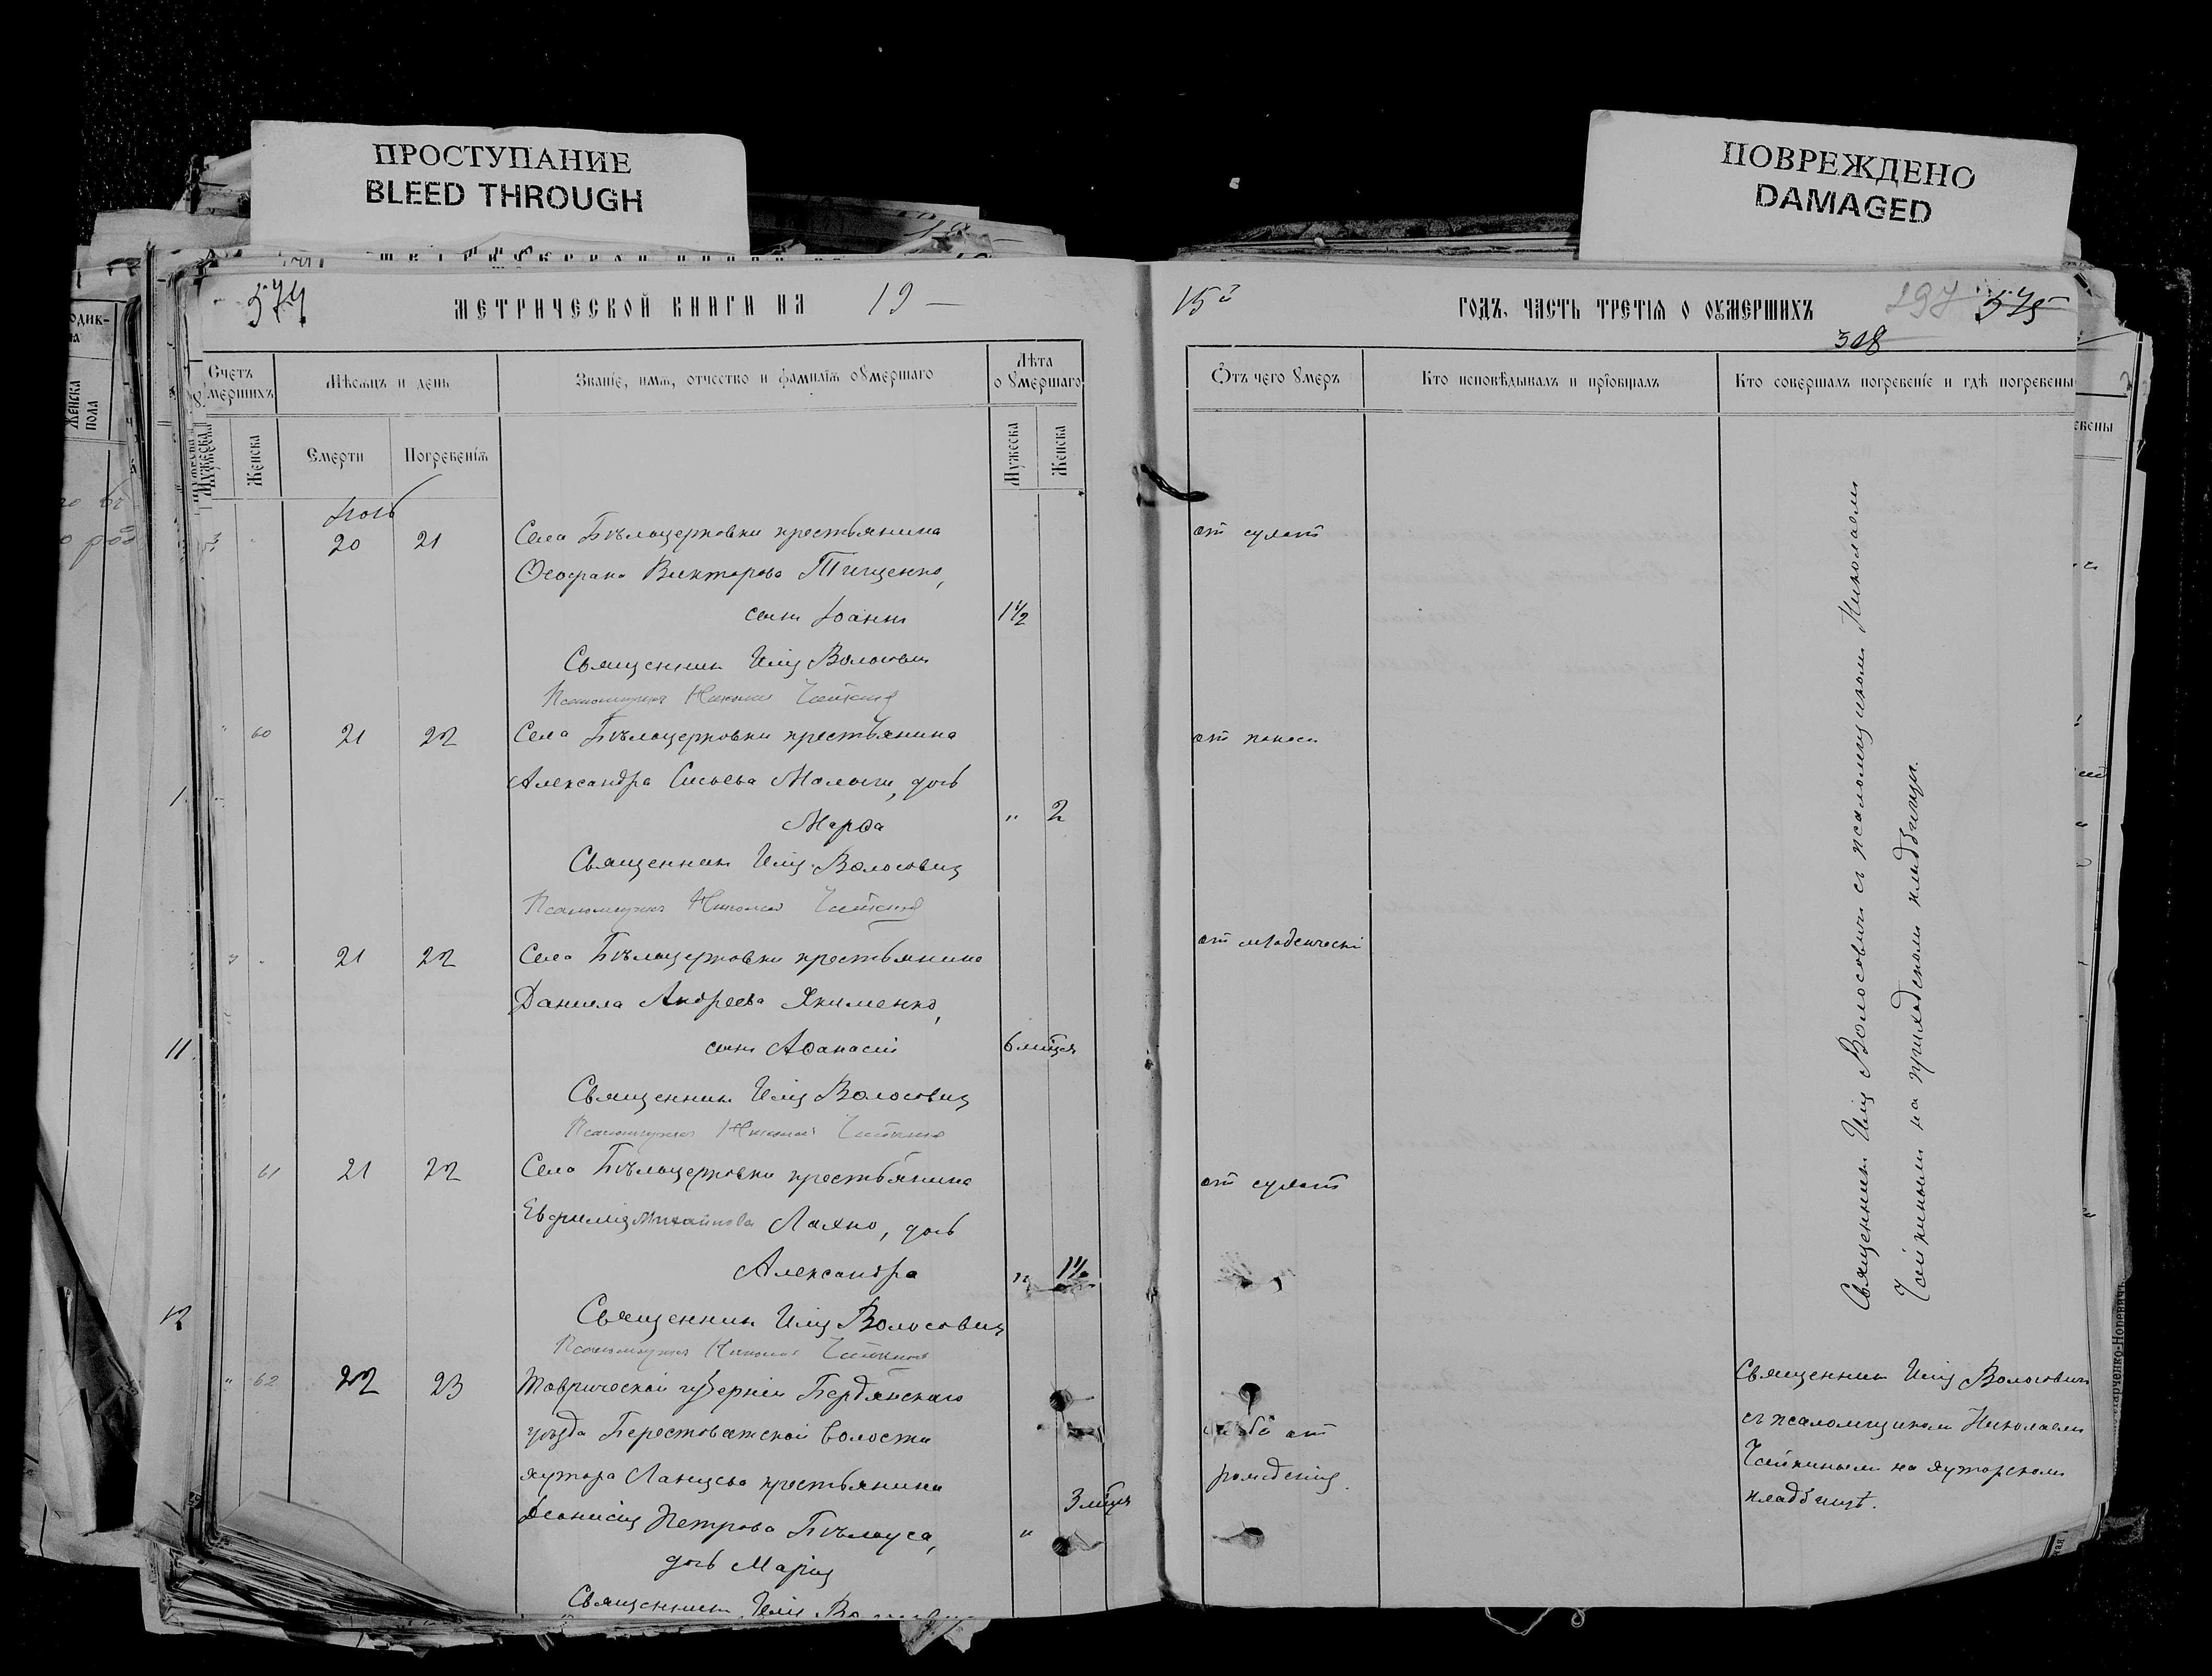 ПРОСТУПАНИЕ
BLEED THROUGH
ПОВРЕЖДЕНО
DAMAGED
574
МЕТРИЧЕСКОЙ КНИГИ НА 19 —
Счетъ умершихъ
Мѣсяцъ и день
Званіе, имя, отчество и фамилія умершаго
Лѣта умершаго
Мужеска
Женска
Смерти
Погребенія
Мужеска
Женска
20 21 Села Бѣлоцерковки крестьянина
Ѳеофана Викторова Тищенко,
сынъ Іоаннъ 1 1/2
Священникъ Илія Волосовичъ
Псаломщикъ Николай Чайкинъ
" 60 21 22 Села Бѣлоцерковки крестьянина
Александра Сисоева Малыги, дочь
Марѳа " 2
Священникъ Илія Волосовичъ
Псаломщикъ Николай Чайкинъ
21 22 Села Бѣлоцерковки крестьянина
Даніила Андреева Якименко,
сынъ Аѳанасій 6 мѣсяц
Священникъ Илія Волосовичъ
Псаломщикъ Николай Чайкинъ
61 21 22 Села Бѣлоцерковки крестьянина
Евфимія Михайлова Лахно, дочь
Александра "
Священникъ Илія Волосовичъ
Псаломщикъ Николай Чайкинъ
" 62 22 23 Таврической губерніи Бердянскаго
уѣзда Берестоватской волости
хутора Ланцева крестьянина
Діонисія Петрова Бѣлоуса, " 3 мѣсяц
дочь Марія
Священникъ Илія
15 г
ГОДЪ, ЧАСТЬ ТРЕТІЯ О УМЕРШИХЪ
297 575
308
Отъ чего умеръ
Кто исповѣдывалъ и пріобщалъ
Кто совершалъ погребеніе и гдѣ погребены
от
от
от младенческ
от
от
рожденія.
Священникъ Илія Волосовичъ съ псаломщикомъ Николаемъ
Чайкинымъ на приходскомъ кладбищѣ.
Священникъ Илія Волосовичъ
съ псаломщикомъ Николаемъ
Чайкинымъ на хуторскомъ
кладбищѣ.